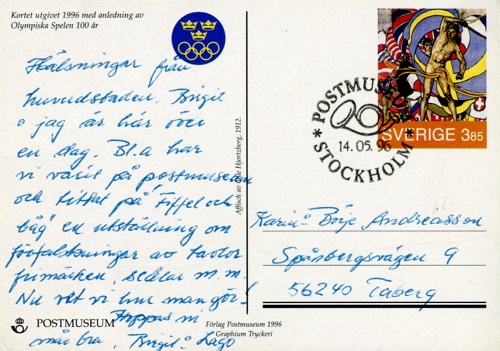 Kortet utgivet 1996 med anledning av
Olympiska Spelen 100 år
Hälsningar från
huvudstaden. Birgit
o jag är här över
en dag. Bl.a har
vi varit på postmuseum
och tittat på Fiffel och
båg en utställning om
förfalskningar av tavlor
frimärken, sedlar m.m.
Nu vet vi hur man gör!
Hoppas ni
mår bra. Birgit o Lago
POSTMUSEUM
Affisch av Olle Hjortzberg, 1912.
Förlag Postmuseum 1996
Graphium Tryckeri
POSTMUSEUM
14.05.96
STOCKHOLM
SVERIGE 3,85
Karin o Börje Andreasson
Spåsbergsvägen 9
56240 Taberg